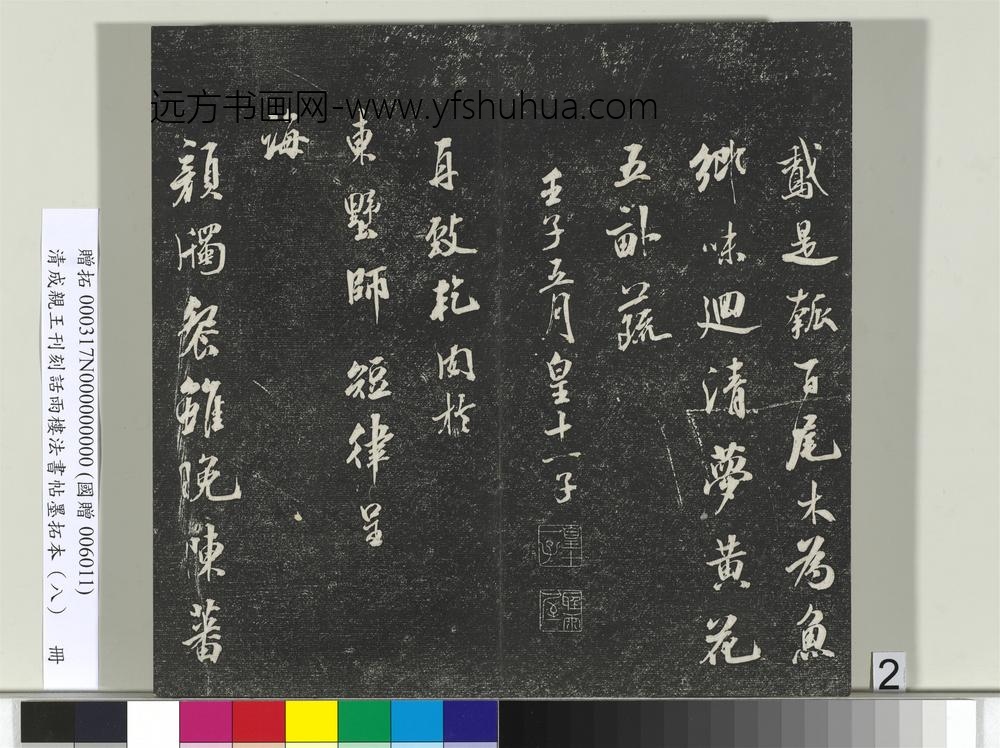 远方书画网-www.yfshuhua.com
是瓠百尾木為魚
鄉味迴清夢黄花
五畝蔬
壬子五月皇十一子
再致乾肉於
東墅師 短律呈
誨
顏斶餐雖晚陳蕃
贈拓 000317N000000000(國贈 006011)
清成親王刊刻話雨樓法書帖墨拓本(八) 冊
2